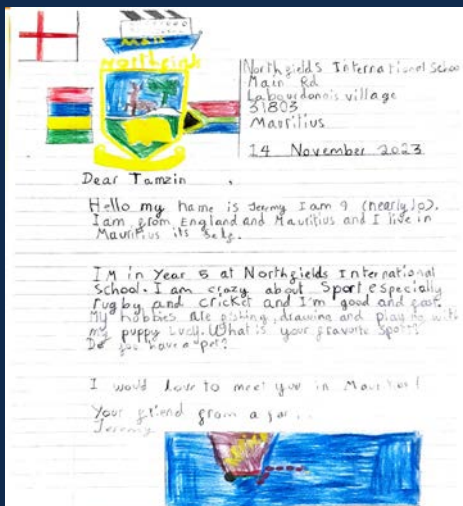 Mail
Northfields
Northfields International School
Main Rd
Labourdonnais village
31803
Mauritius
14 November 2023
Dear Tamzin ,
Hello my name is Jeremy I am 9 (nearly 10).
I am from England and Mauritius and I live in
Mauritius its self.
IM in Year 5 at Northfields International
School. I am crazy about Sport especially
rugby and cricket and I'm good and fast.
My hobbies are fishing, drawing and playing with
my puppy Lucy. What is your fravorite sport?
Do you have a pet?
I would love to meet you in Mauritius!
Your friend from a far...
Jeremy